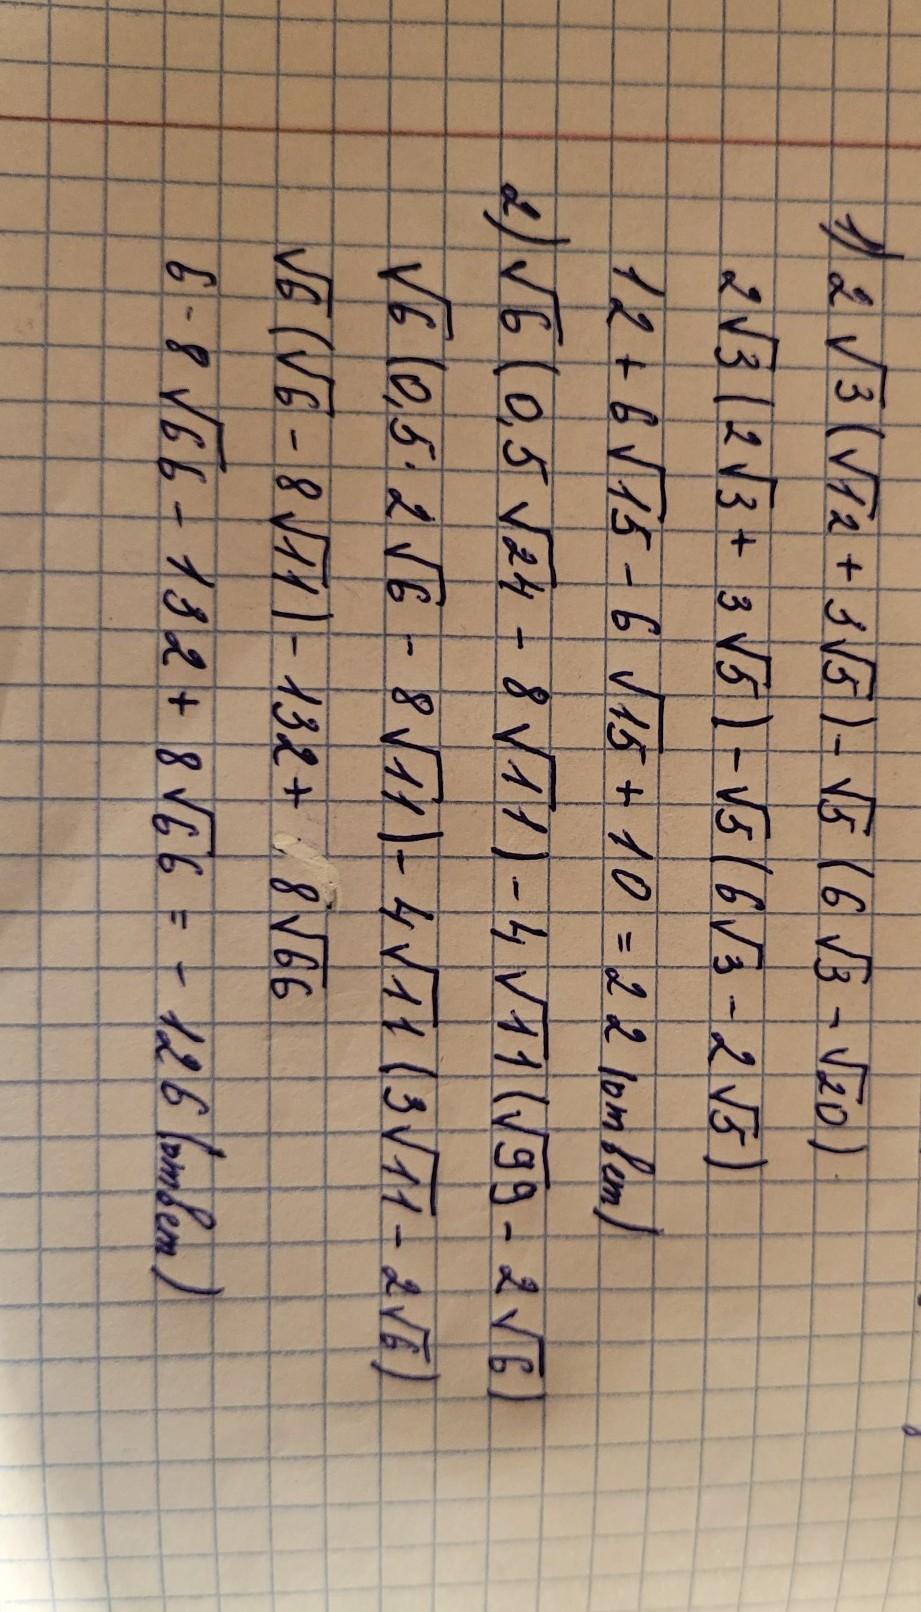 1) 2√3(√12 + 3√5) - √5(6√3 - √20)
2√3(2√3 + 3√5) - √5(6√3 - 2√5)
12 + 6√15 - 6√15 + 10 = 22 (ответ)
2) √6(0,5√24 - 8√11) - 4√11(√99 - 2√6)
√6(0,5·2√6 - 8√11) - 4√11(3√11 - 2√6)
√6(√6 - 8√11) - 132 + 8√66
6 - 8√66 - 132 + 8√66 = - 126 (ответ)